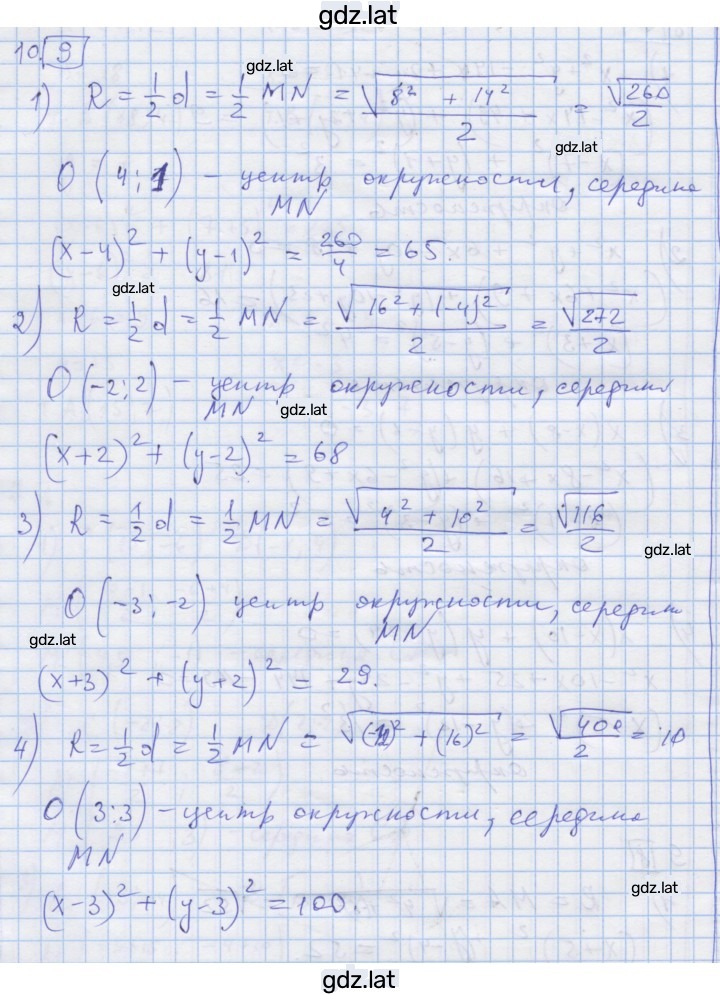 gdz.lat
10. 9
gdz.lat
1) R = 1/2 d = 1/2 MN = √(8² + 14²)/2 = √260/2
gdz.lat
O (4; 1) – центр окружности, середина
MN
(x-4)² + (y-1)² = 260/4 = 65.
gdz.lat
2) R = 1/2 d = 1/2 MN = √(16² + (-4)²)/2 = √272/2
O (-2; 2) – центр окружности, середина
MN
gdz.lat
(x+2)² + (y-2)² = 68
3) R = 1/2 d = 1/2 MN = √(4² + 10²)/2 = √116/2
gdz.lat
O (-3; -2) центр окружности, середина
MN
gdz.lat
(x+3)² + (y+2)² = 29.
4) R = 1/2 d = 1/2 MN = √((-12)² + (16)²) = √400/2 = 10
gdz.lat
O (3; 3) – центр окружности, середина
MN
gdz.lat
(x-3)² + (y-3)² = 100.
gdz.lat